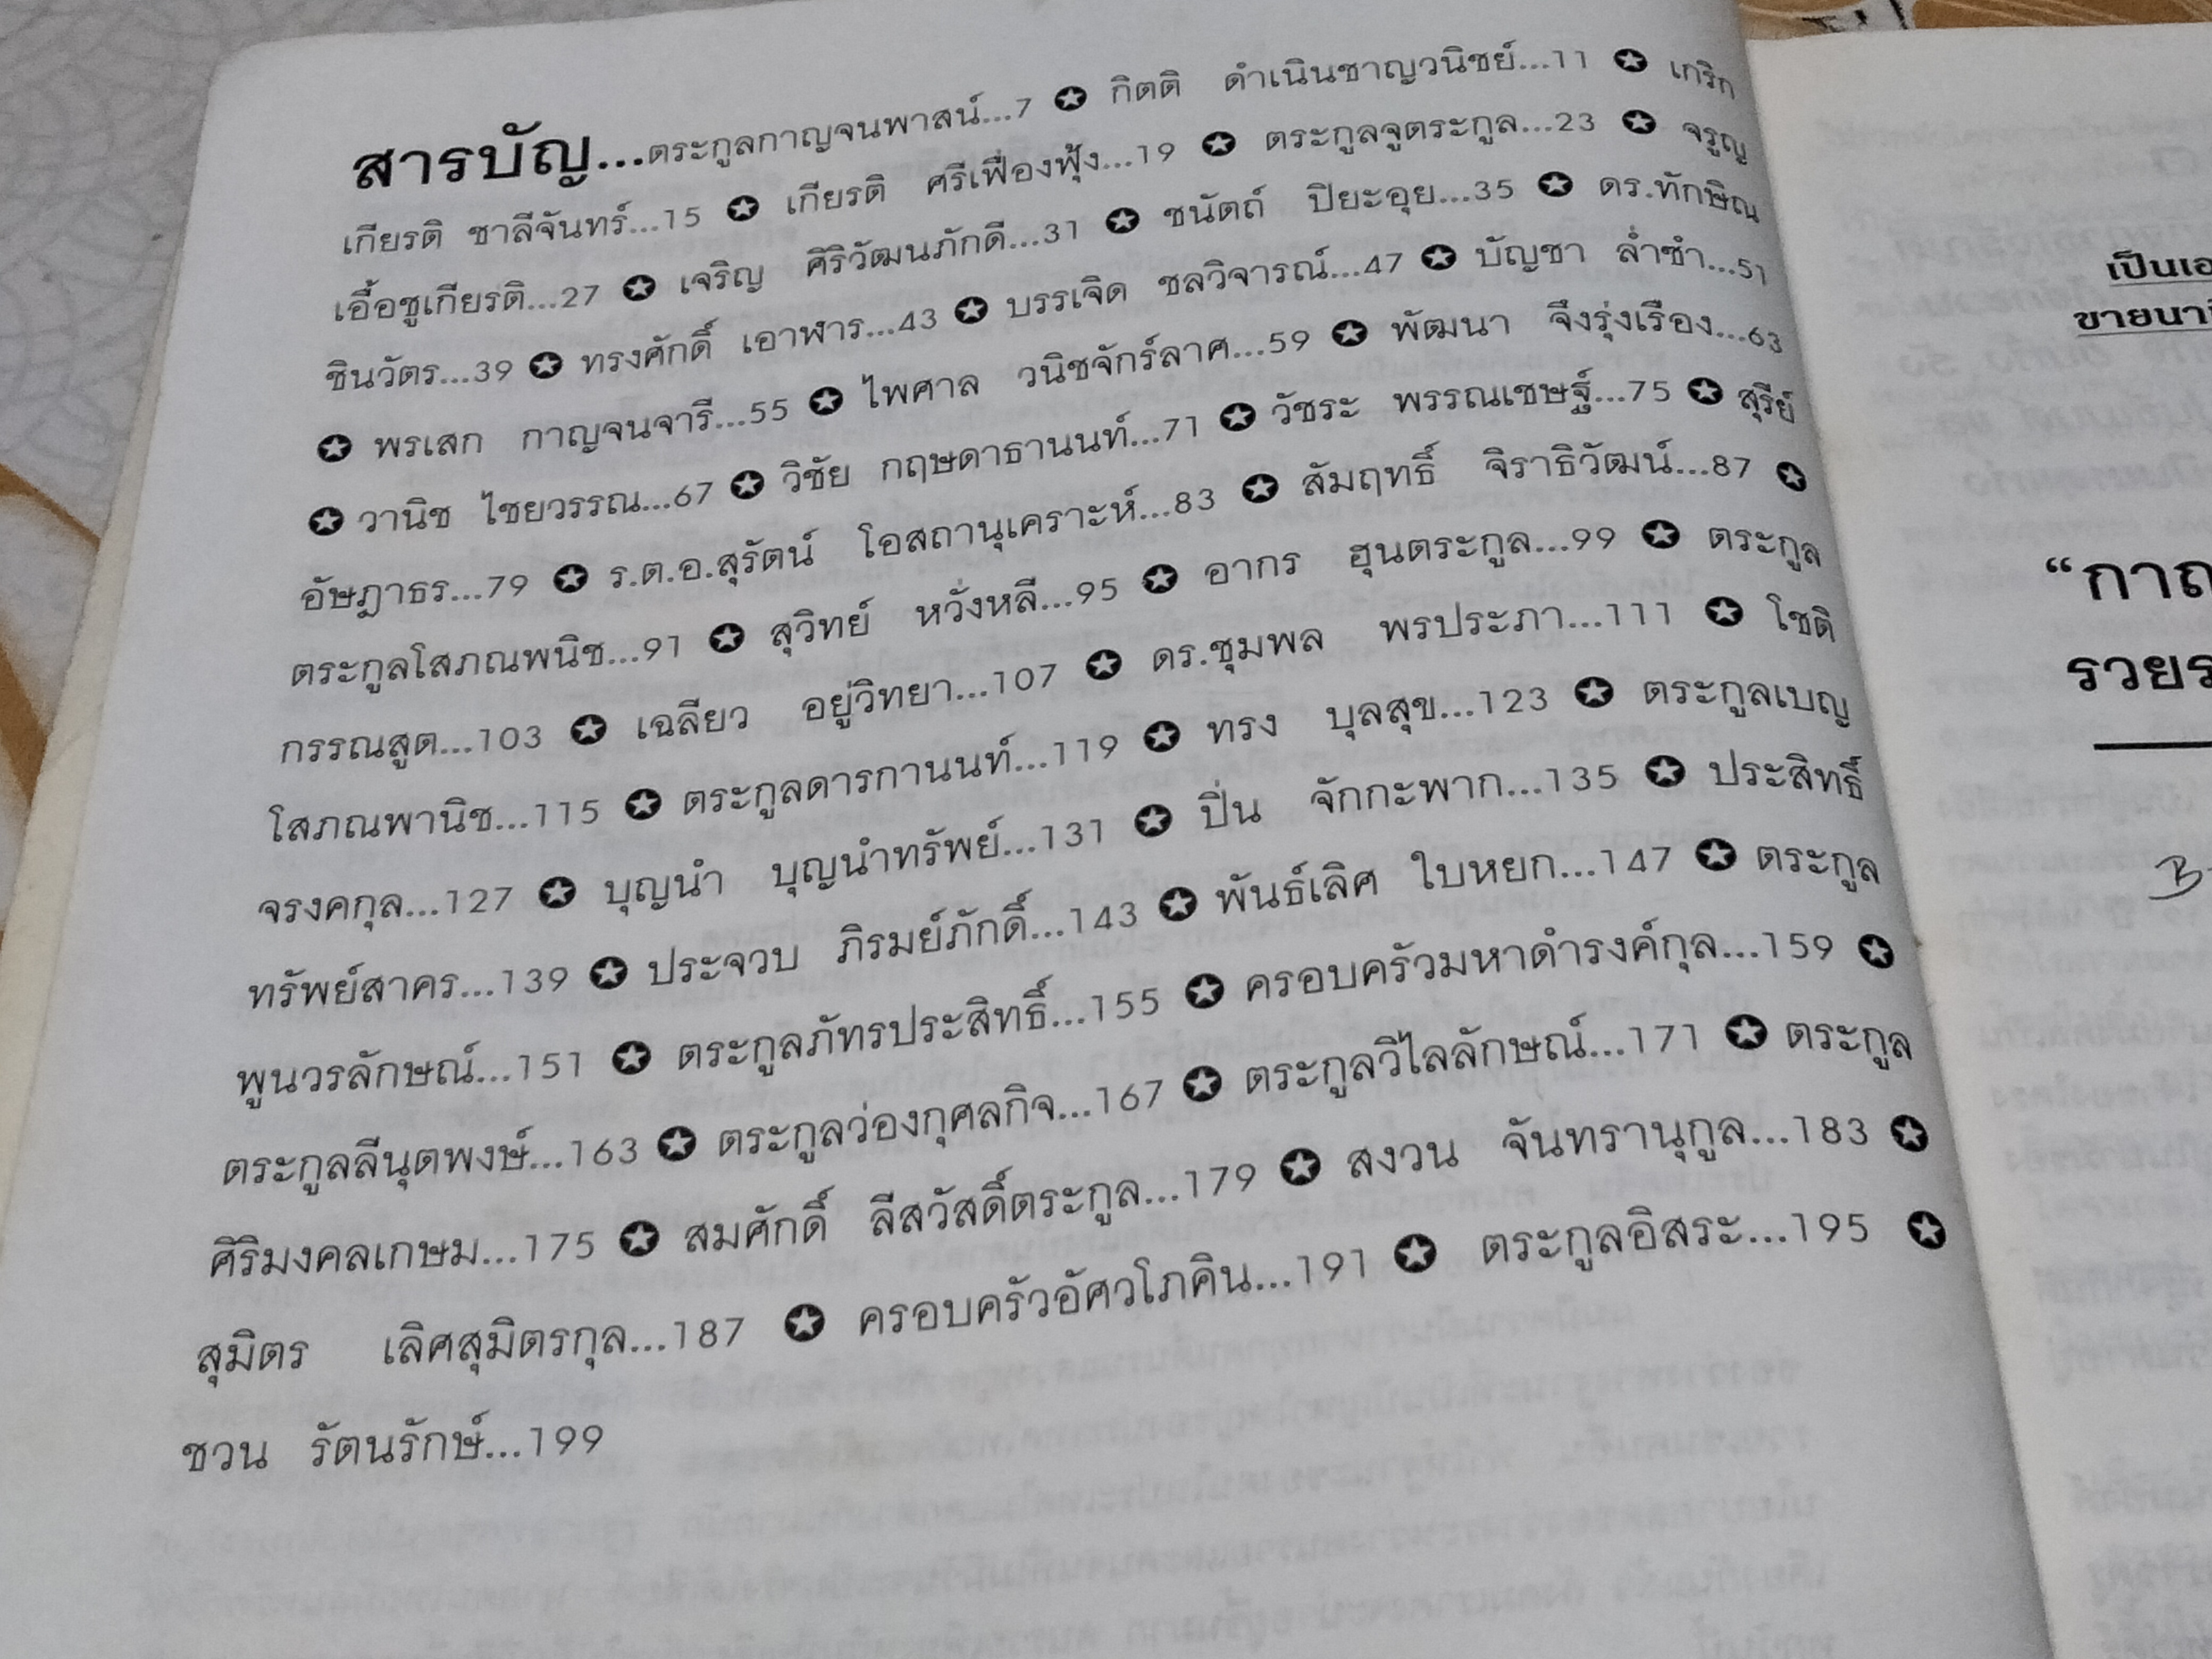 สารบัญ...ตระกูลกาญจนพาสน์...7 ✪ กิตติ ดำเนินชาญวนิชย์...11 ✪ เกริก
เกียรติ ชาลีจันทร์...15 ✪ เกียรติ ศรีเฟื่องฟุ้ง...19 ✪ ตระกูลจูตระกูล...23 ✪ จรูญ
เอื้อชูเกียรติ...27 ✪ เจริญ ศิริวัฒนภักดี...31 ✪ ชนัตถ์ ปิยะอุย...35 ✪ ดร.ทักษิณ
ชินวัตร...39 ✪ ทรงศักดิ์ เอาฬาร...43 ✪ บรรเจิด ชลวิจารณ์...47 ✪ บัญชา ล่ำซำ...51
✪ พรเสก กาญจนจารี...55 ✪ ไพศาล วนิชจักร์ลาศ...59 ✪ พัฒนา จึงรุ่งเรือง...63
✪ วานิช ไชยวรรณ...67 ✪ วิชัย กฤษดาธานนท์...71 ✪ วัชระ พรรณเชษฐ์...75 ✪ สุรีย์
อัษฎาธร...79 ✪ ร.ต.อ.สุรัตน์ โอสถานุเคราะห์...83 ✪ สัมฤทธิ์ จิราธิวัฒน์...87 ✪
ตระกูลโสภณพนิช...91 ✪ สุวิทย์ หวั่งหลี...95 ✪ อากร ฮุนตระกูล...99 ✪ ตระกูล
กรรณสูต...103 ✪ เฉลียว อยู่วิทยา...107 ✪ ดร.ชุมพล พรประภา...111 ✪ โชติ
โสภณพานิช...115 ✪ ตระกูลดารกานนท์...119 ✪ ทรง บุลสุข...123 ✪ ตระกูลเบญ
จรงคกุล...127 ✪ บุญนำ บุญนำทรัพย์...131 ✪ ปิ่น จักกะพาก...135 ✪ ประสิทธิ์
ทรัพย์สาคร...139 ✪ ประจวบ ภิรมย์ภักดิ์...143 ✪ พันธ์เลิศ ใบหยก...147 ✪ ตระกูล
พูนวรลักษณ์...151 ✪ ตระกูลภัทรประสิทธิ์...155 ✪ ครอบครัวมหาดำรงค์กุล...159 ✪
ตระกูลลีนุตพงษ์...163 ✪ ตระกูลว่องกุศลกิจ...167 ✪ ตระกูลวิไลลักษณ์...171 ✪ ตระกูล
ศิริมงคลเกษม...175 ✪ สมศักดิ์ ลีสวัสดิ์ตระกูล...179 ✪ สงวน จันทรานุกูล...183 ✪
สุมิตร เลิศสุมิตรกุล...187 ✪ ครอบครัวอัศวโภคิน...191 ✪ ตระกูลอิสระ...195 ✪
ชวน รัตนรักษ์...199
เป็นเอ
ขายนา
“กาญ
รวยร